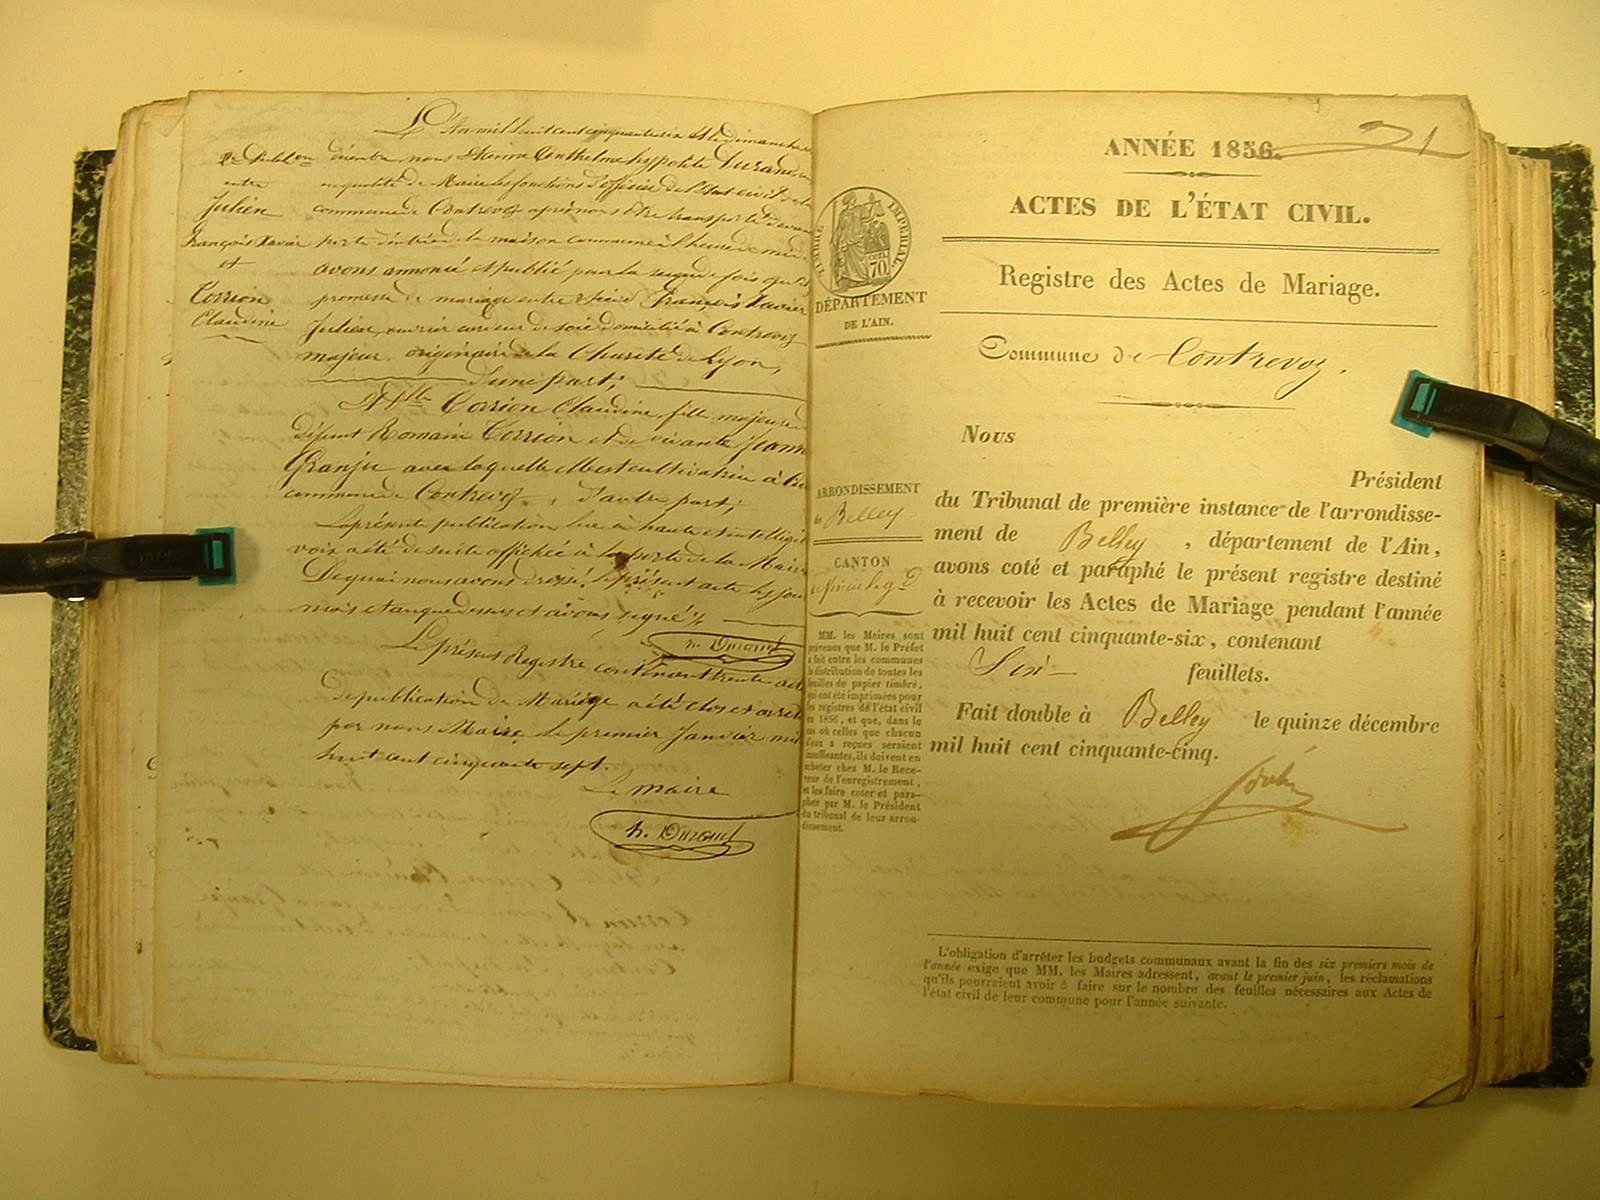 L'An mil huit cent cinquante six et le Dimanche
décembre nous Durand
en qualité de Maire les fonctions d'officier de l'Etat civil de la
commune de Contrevoz après nous être transporté devant
porte d'entrée de la maison commune à l'heure de midi
avons annoncé et publié pour la seconde fois qu'il
promesse de mariage entre François Xavier
Julien, ouvrier cardeur de soie domicilié à Contrevoz
majeur, originaire de la Charité de Lyon,
d'une part;
Et Dlle Corrion Claudine, fille majeure
défunt Romain Corrion et de vivante Jeanne
Granju avec laquelle elle est cultivatrice à
commune de Contrevoz, d'autre part;
La présente publication lue à haute et intelligi
voix a été de suite affichée à la porte de la Mairie
De quoi nous avons dressé le présent acte les jour
mois et an que dessus et avons signé
h. Durand
Le présent Registre contenant trente actes
de publication de Mariage a été clos et arrêté
par nous Maire le premier Janvier mil
huit cent cinquante sept.
Le maire
h. Durand
2e Publion
entre
Julien
François Xavier
et
Corrion
Claudine
21
ANNÉE 1856.
ACTES DE L'ÉTAT CIVIL.
Registre des Actes de Mariage.
Commune de Contrevoz.
TIMBRE IMPÉRIAL
70
DÉPARTEMENT
DE L'AIN.
ARRONDISSEMENT
de Belley
CANTON
MM. les Maires sont
prévenus que M. le Préfet
a fait entre les communes
la distribution de toutes les
feuilles de papier timbré,
qui ont été imprimées pour
les registres de l'état civil
en 1856, et que, dans le
cas où celles que chacun
d'eux a reçues seraient
insuffisantes, ils doivent en
acheter chez M. le Rece-
veur de l'enregistrement,
et les faire coter et para-
pher par M. le Président
du tribunal de leur arron-
dissement.
Nous
Président
du Tribunal de première instance de l'arrondisse-
ment de Belley, département de l'Ain,
avons coté et paraphé le présent registre destiné
à recevoir les Actes de Mariage pendant l'année
mil huit cent cinquante-six, contenant
Six feuillets.
Fait double à Belley le quinze décembre
mil huit cent cinquante-cinq.
L'obligation d'arrêter les budgets communaux avant la fin des six premiers mois de
l'année exige que MM. les Maires adressent, avant le premier juin, les réclamations
qu'ils pourraient avoir à faire sur le nombre des feuilles nécessaires aux Actes de
l'état civil de leur commune pour l'année suivante.